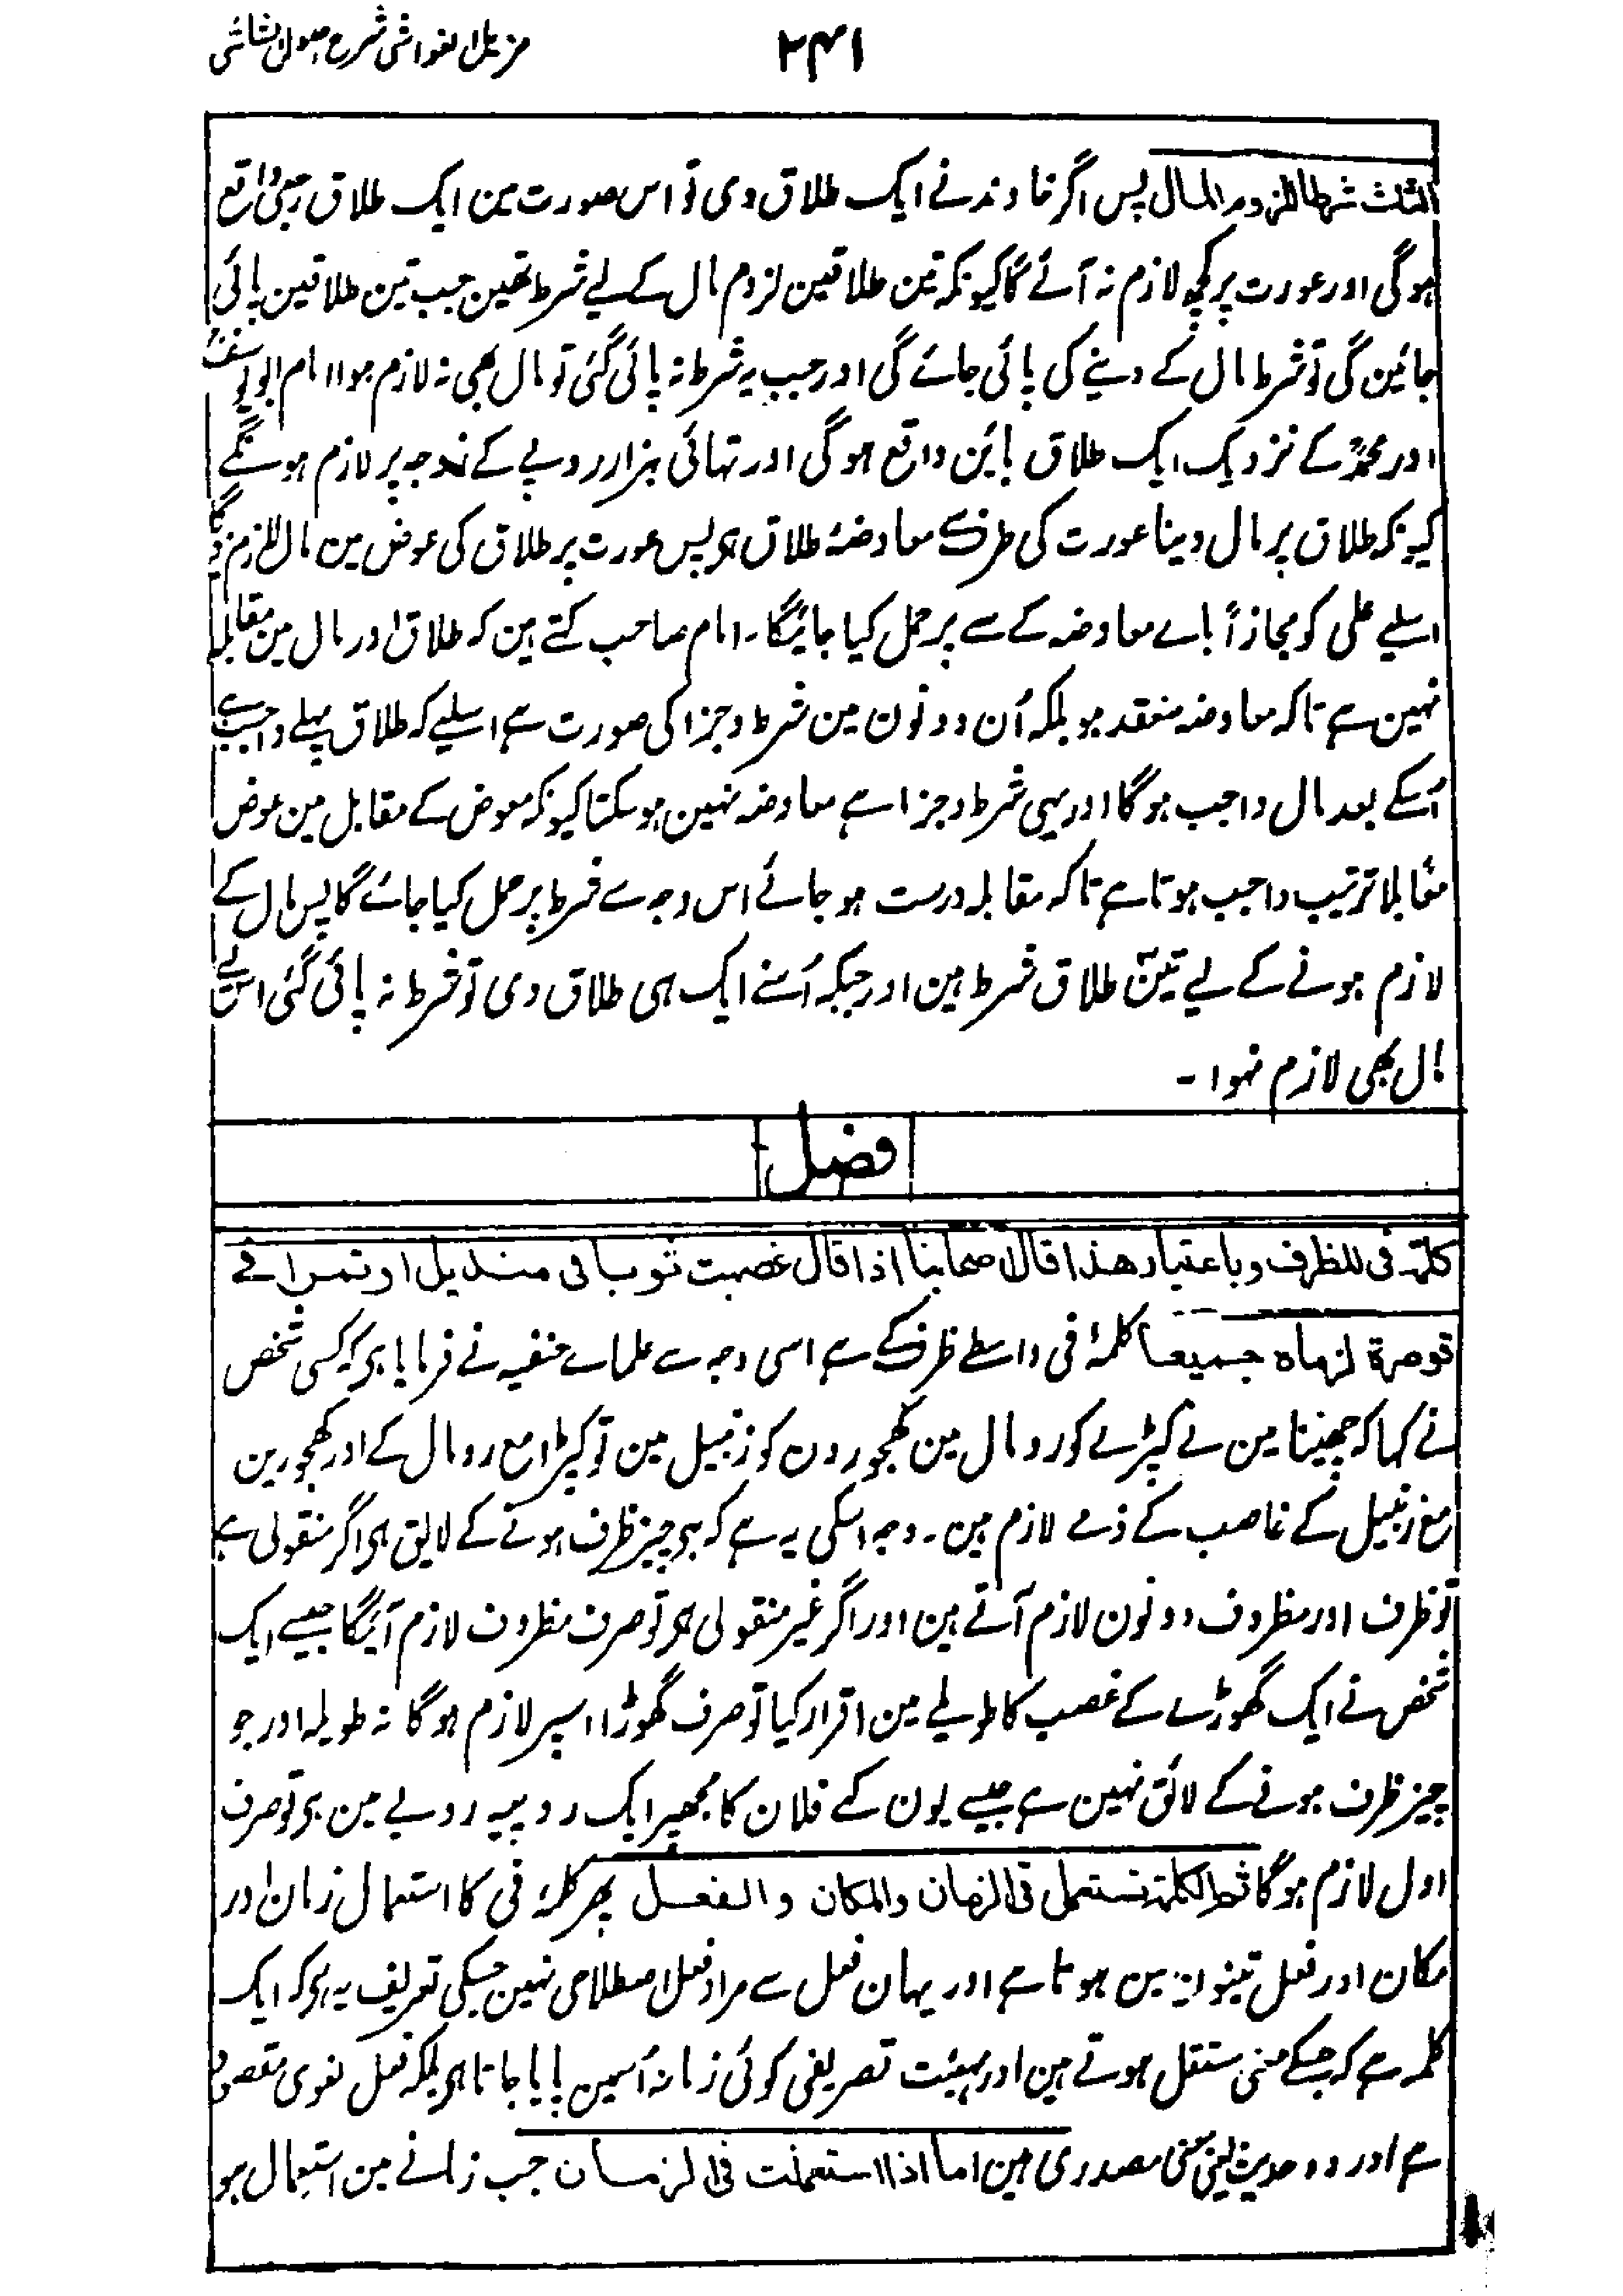 ۲۴۱
مزیل الغواشی شرح اصول الشاشی
الثلث شرطا للزوم المال پس اگر خاوند نے ایک طلاق دی تو اس صورت مین ایک طلاق رجعی واقع
ہوگی اور عورت پر کچھ لازم نہ آئے گا کیونکہ تین طلاقین لزوم مال کے لیے شرط تھین جب تین طلاقین پائی
جائین گی تو شرط مال کے دینے کی پائی جائے گی اور جب یہ شرط نہ پائی گئی تو مال بھی نہ لازم ہوا امام ابو یوسفؒ
اور محمدؒ کے نزدیک ایک طلاق بائن واقع ہوگی اور تہائی ہزار روپے کے زوجہ پر لازم ہونگے
کیونکہ طلاق پر مال دینا عورت کی طرف سے معاوضۂ طلاق ہے پس عورت پر طلاق کی عوض مین مال لازم ہوگا
اسلیے علی کو مجازاً باے معاوضہ کے معنے پر حمل کیا جائیگا۔ امام صاحب کہتے ہین کہ طلاق اور مال مین مقابلہ
نہین ہے تاکہ معاوضہ منعقد ہو بلکہ اُن دونون مین شرط و جزا کی صورت ہے اسلیے کہ طلاق پہلے واجب ہے
اُسکے بعد مال واجب ہوگا اور یہی شرط و جزا ہے معاوضہ نہین ہوسکتا کیونکہ معوض کے مقابل مین عوض
مقابلا ترتیب واجب ہوتا ہے تاکہ مقابلہ درست ہو جائے اس وجہ سے شرط پر حمل کیا جائے گا پس مال کے
لازم ہونے کے لیے تین طلاق شرط ہین اور جبکہ اُسنے ایک ہی طلاق دی تو شرط نہ پائی گئی اس لیے
مال بھی لازم نہوا۔
فصل
كلمة فى للظرف وباعتبار هذا قال اصحابنا اذا قال غصبت ثوبا فى منديل او تمرا فى
قوصرة لزماه جميعا کلمۂ فی واسطے ظرف کے ہے اسی وجہ سے علماے حنفیہ نے فرمایا ہے کہ کسی شخص
نے کہا کہ چھینا مین نے کپڑے کو رومال مین کھجورون کو زنبیل مین تو کپڑا مع رومال کے اور کھجورین
مع زنبیل کے غاصب کے ذمے لازم ہین۔ وجہ اسکی یہ ہے کہ جو چیز ظرف ہونے کے لایق ہے اگر منقولی ہے
تو ظرف اور مظروف دونون لازم آتے ہین اور اگر غیر منقولی ہے تو صرف مظروف لازم آئیگا جیسے ایک
شخص نے ایک گھوڑے کے غصب کا طویلے مین اقرار کیا تو صرف گھوڑا اسپر لازم ہوگا نہ طویلہ اور جو
چیز ظرف ہونے کے لائق نہین ہے جیسے یون کہے فلان کا مجھپر ایک روپیہ روپے مین ہے تو صرف
اول لازم ہوگا ثم الكلمة تستعمل فى الزمان والمكان والفعل پھر کلمۂ فی کا استعمال زمان اور
مکان اور فعل تینون مین ہوتا ہے اور یہان فعل سے مراد فعل اصطلاحی نہین جسکی تعریف یہ ہے کہ ایک
کلمہ ہے کہ جسکے معنی مستقل ہوتے ہین اور بہیئت تصریفی کوئی زمانہ اُسمین پایا جاتا ہے بلکہ فعل لغوی مقصود
ہے اور وہ حدث یعنی معنی مصدری ہین اما اذا استعملت فى الزمان جب زمانے مین استعمال ہو